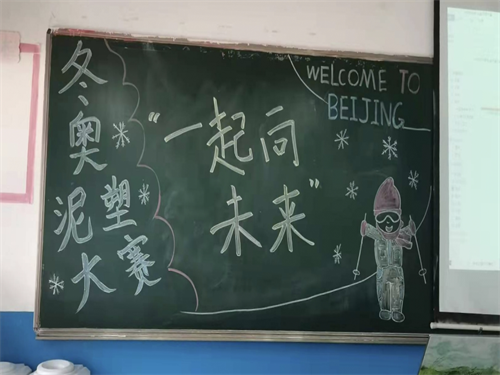 冬奥
泥塑
大赛
“一起向
未来”
WELCOME TO
BEIJING